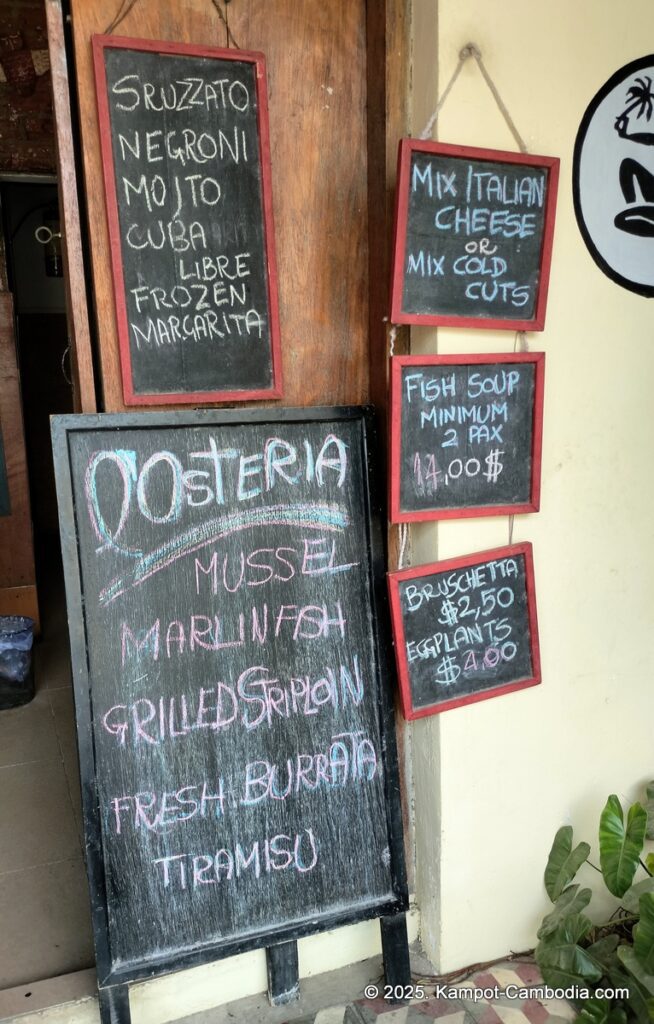 SRUZZATO
NEGRONI
MOJTO
CUBA
LIBRE
FROZEN
MARGARITA
MIX ITALIAN
CHEESE
OR
MIX COLD
CUTS
FISH SOUP
MINIMUM
2 PAX
17,00$
BRUSCHETTA
$2,50
EGGPLANTS
$4.00
OSTERIA
MUSSEL
MARLIN FISH
GRILLED STRIPLOIN
FRESH BURRATA
TIRAMISU
© 2025. Kampot-Cambodia.com